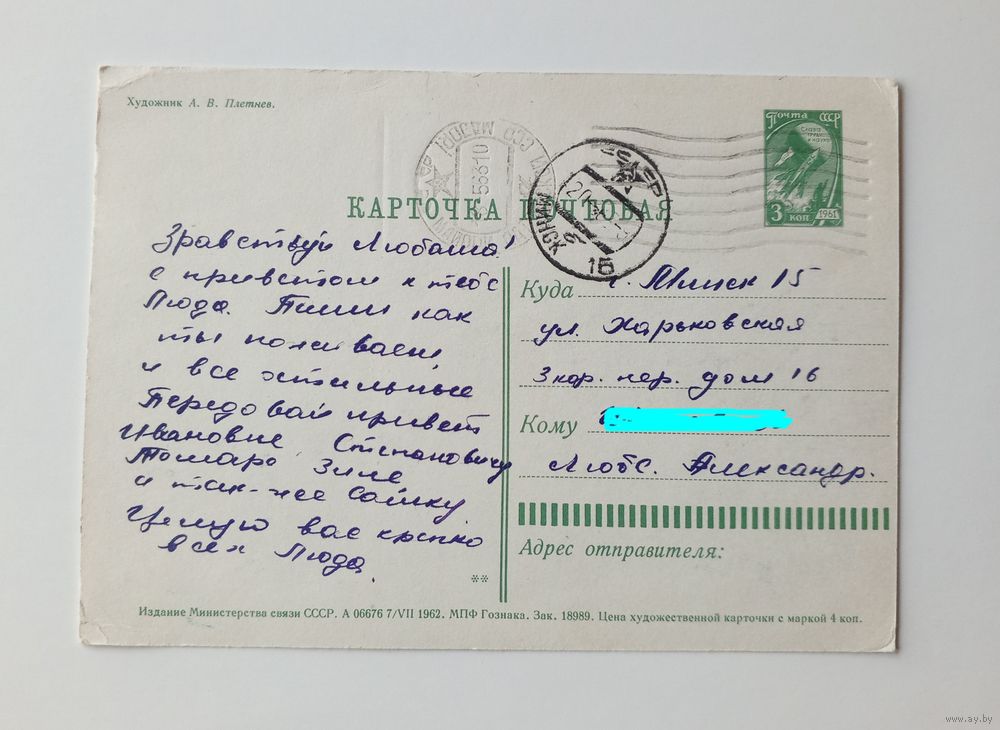 Художник А. В. Плетнев.
Почта СССР
Слава труду и науке
3 коп
1961
МИНСК
15
КАРТОЧКА ПОЧТОВАЯ
Здравствуй Любаша!
с приветом к тебе
Люда. Пиши как
ты поживаеш
и все остальные
Передовай привет
Ивановне Степановичу
Томаре Зине
и так-же Сашку
Целую вас крепко
всех Люда.
Куда г. Минск 15
ул. Харьковская
3 кор. пер. дом 16
Кому
Любе. Александр.
Адрес отправителя:
**
Издание Министерства связи СССР. А 06676 7/VII 1962. МПФ Гознака. Зак. 18989. Цена художественной карточки с маркой 4 коп.
www.ay.by